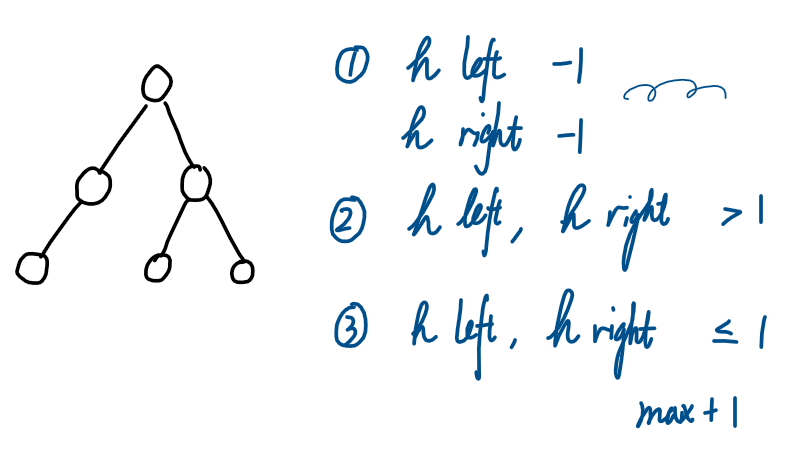 ① h left -1
h right -1
② h left, h right > 1
③ h left, h right ≤ 1
max + 1